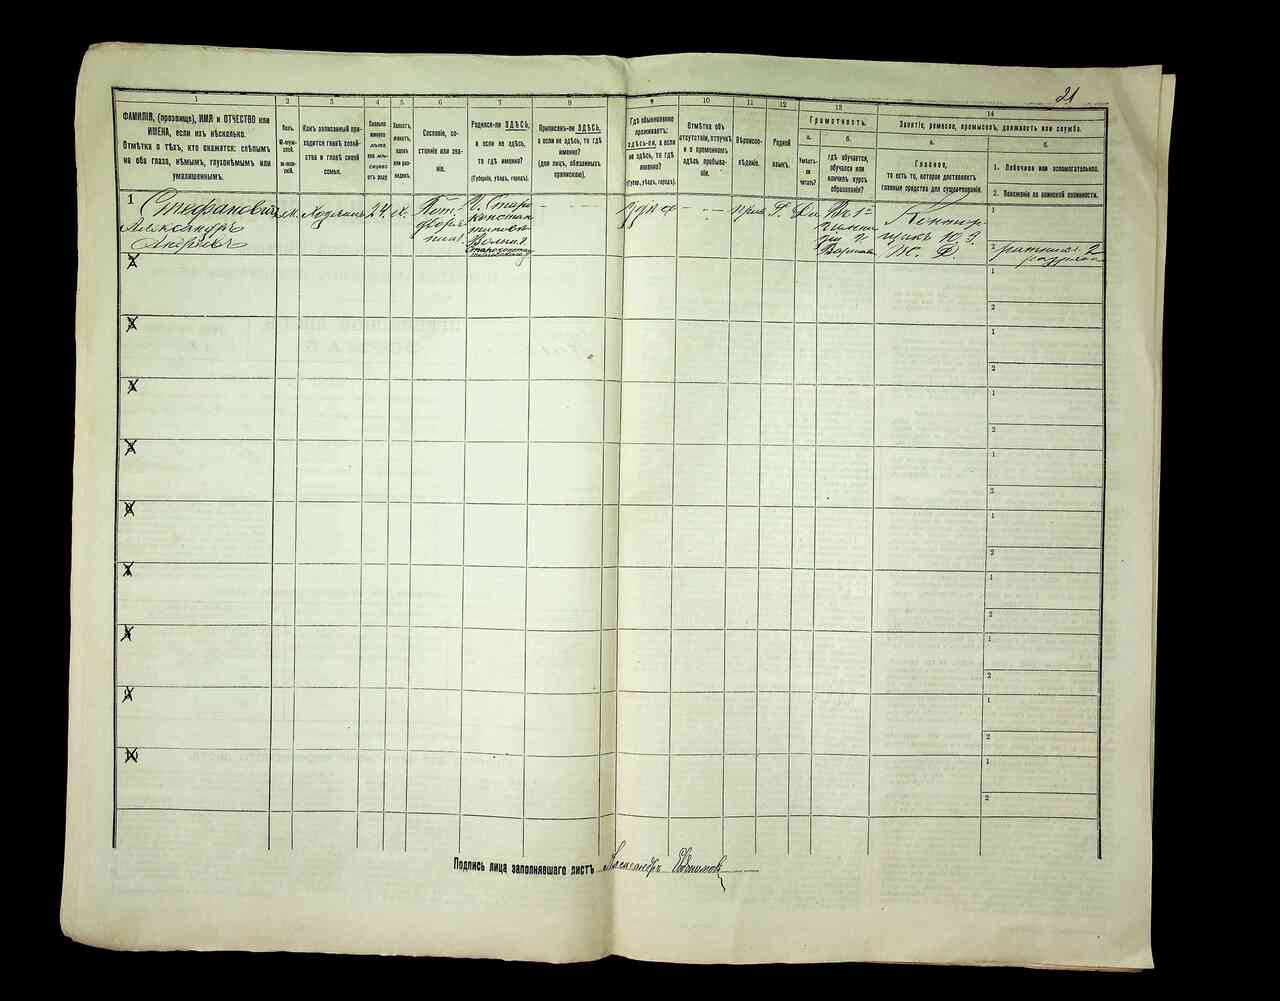 21
1
2
3
4
5
6
7
8
9
10
11
12
13
14
ФАМИЛІЯ, (прозвище), ИМЯ и ОТЧЕСТВО или
ИМЕНА, если ихъ нѣсколько.
Отмѣтка о тѣхъ, кто окажется: слѣпымъ
на оба глаза, нѣмымъ, глухонѣмымъ или
умалишеннымъ.
Полъ.
М-муж-
ской.
Ж-жен-
скій.
Какъ записанный при-
ходится главѣ хозяй-
ства и главѣ своей
семьи.
Сколько
минуло
лѣтъ
или мѣ-
сяцевъ
отъ роду
Холостъ,
женатъ,
вдовъ
или раз-
веденъ.
Сословіе, со-
стояніе или зва-
ніе.
Родился-ли ЗДѢСЬ,
а если не здѣсь,
то гдѣ именно?
(Губернія, уѣздъ, городъ).
Приписанъ-ли ЗДѢСЬ,
а если не здѣсь, то гдѣ
именно?
(для лицъ, обязанныхъ
припискою).
Гдѣ обыкновенно
проживаетъ:
здѣсь-ли, а если
не здѣсь, то гдѣ
именно?
(Губер., уѣздъ, городъ).
Отмѣтка объ
отсутствіи, отлучкѣ
и о временномъ
здѣсь пребыва-
ніи.
Вѣроиспо-
вѣданіе.
Родной
языкъ.
Грамотность.
а.
б.
Умѣетъ-
ли
читать?
гдѣ обучается,
обучался или
кончилъ курсъ
образованія?
Занятіе, ремесло, промыселъ, должность или служба.
а.
б.
Главное,
то есть то, которое доставляетъ
главныя средства для существованія.
1. Побочное или вспомогательное.
2. Положеніе по воинской повинности.
1
Стефановичъ
Александръ
Андреевъ
М.
24.
Х.
Пот.
двор
Г. Старо
констан
тиновъ
Волын.
- - - -
здѣсь
- - -
прав
Р.
Да
Въ 1й
гимна
зіи
Контор
щикъ Ю. З.
Ж. Д.
1
2 ратникъ 2
разряда
2
3
4
5
6
7
8
9
10
1
2
1
2
1
2
1
2
1
2
1
2
1
2
1
2
1
2
Подпись лица заполнявшаго листъ Александръ